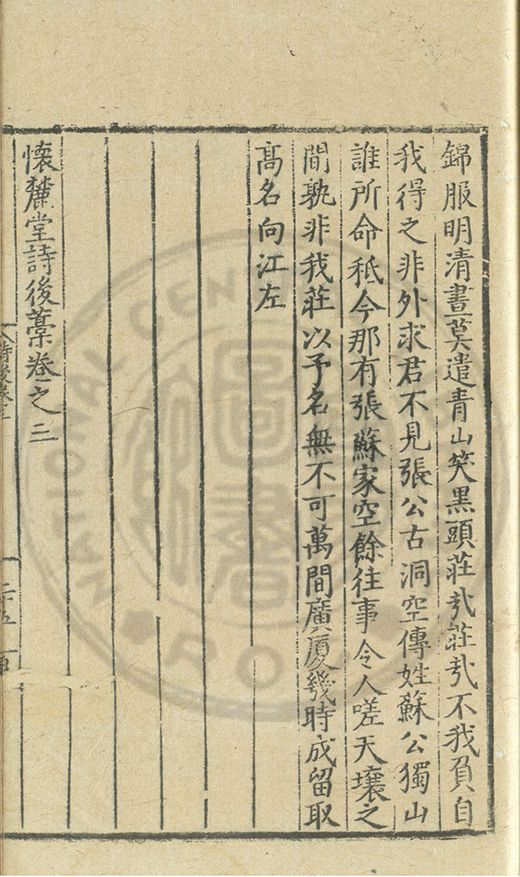 錦服明清晝莫遣青山笑黑頭莊㢤莊㢤不我負自
我得之非外求君不見張公古洞空傳姓蘇公獨山
誰所命秪今那有張蘇家空餘往事令人嗟天壤之
間孰非我莊以予名無不可萬間廣厦幾時成留取
髙名向江左
懷麓堂詩後藁卷之三